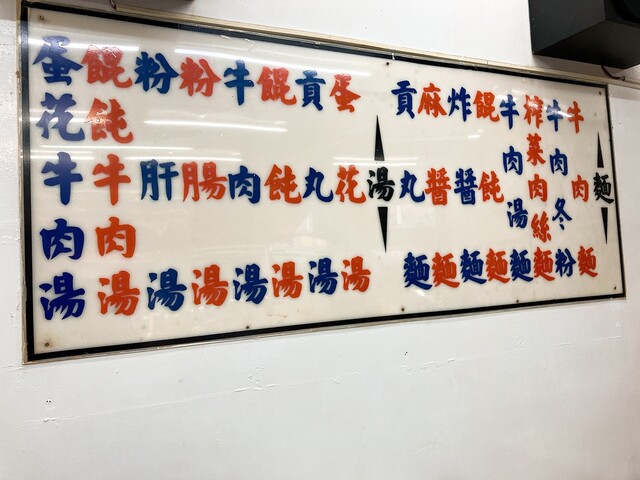 麵
牛肉麵
牛肉冬粉
榨菜肉絲麵
牛肉湯麵
餛飩麵
炸醬麵
麻醬麵
貢丸麵
湯
蛋花湯
貢丸湯
餛飩湯
牛肉湯
粉腸湯
粉肝湯
餛飩牛肉湯
蛋花牛肉湯